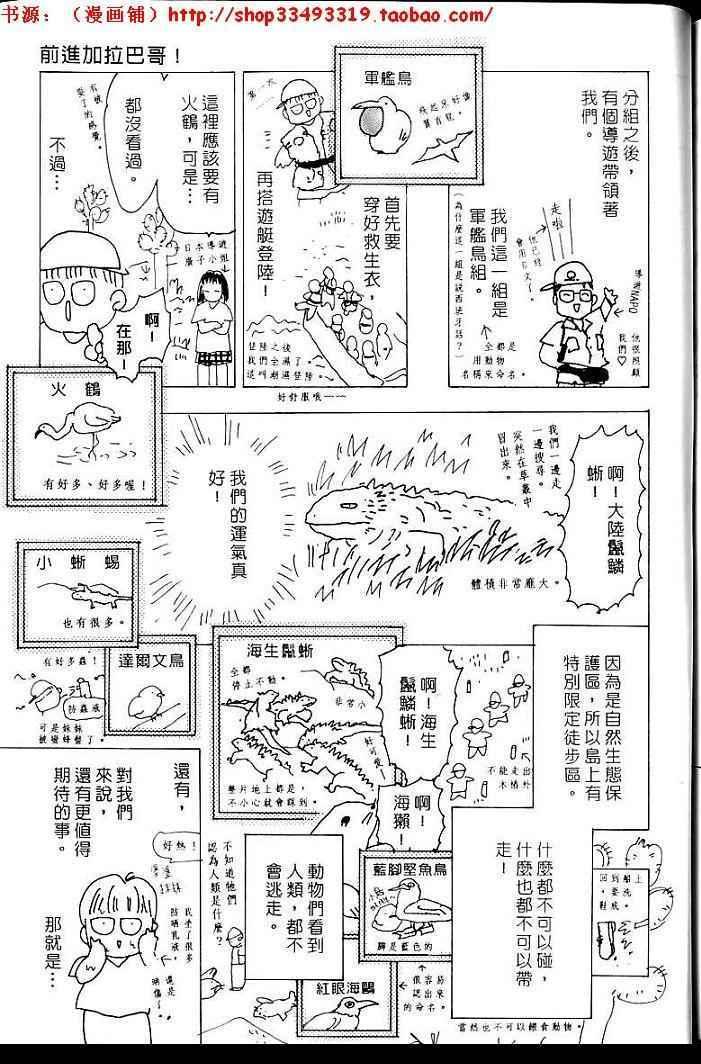 书源：（漫画铺）http://shop33493319.taobao.com/
前進加拉巴哥！
分組之後，
有個導遊帶領著
我們。
走啦
他已經
會用日文了。
導遊NAPO
他很照顧
我們♡
我們這一組是
軍艦鳥組。
（為什麼這一組是說西班牙話？）
全都是
用動物
名稱來命名。
軍艦鳥
第一天
首先要
穿好救生衣，
再搭遊艇登陸！
登陸之後
我們全濕了。
這叫潮濕登陸。
好舒服哦——
這裡應該要有
火鶴，可是…
都沒看過。
不過…
日本導遊
廣子小姐
啊！
在那！
火鶴
有好多、好多喔！
啊！大陸鬣鱗
蜥！
我們一邊走
一邊搜尋。
突然在草叢中
冒出來。
體積非常龐大。
我們的運氣真
好！
小蜥蜴
也有很多。
達爾文鳥
有好多蟲！
防蟲液
可是妹妹
被蜜蜂螫了。
因為是自然生態保
護區，所以島上有
特別限定徒步區。
不能走出
木樁外
啊！海生
鬣鱗蜥！
啊！
海獺！
海生鬣蜥
全都
停止不動。
非常小
好可愛！
整片地上都是，
不小心就會踩到。
什麼都不可以碰，
什麼也都不可以帶
走！
回到船上
，要洗
鞋底。
當然也不可以餵食動物。
藍腳堅魚鳥
腳是藍色的
很容易
認出來
的命名。
紅眼海鷗
動物們看到
人類，都不
會逃走。
不知道牠們
認為人類是什麼？
還有，
對我們
來說，
還有更值得
期待的事。
好熱！
我塗了很多
防曬乳液。
還是
曬傷了。
那就是…